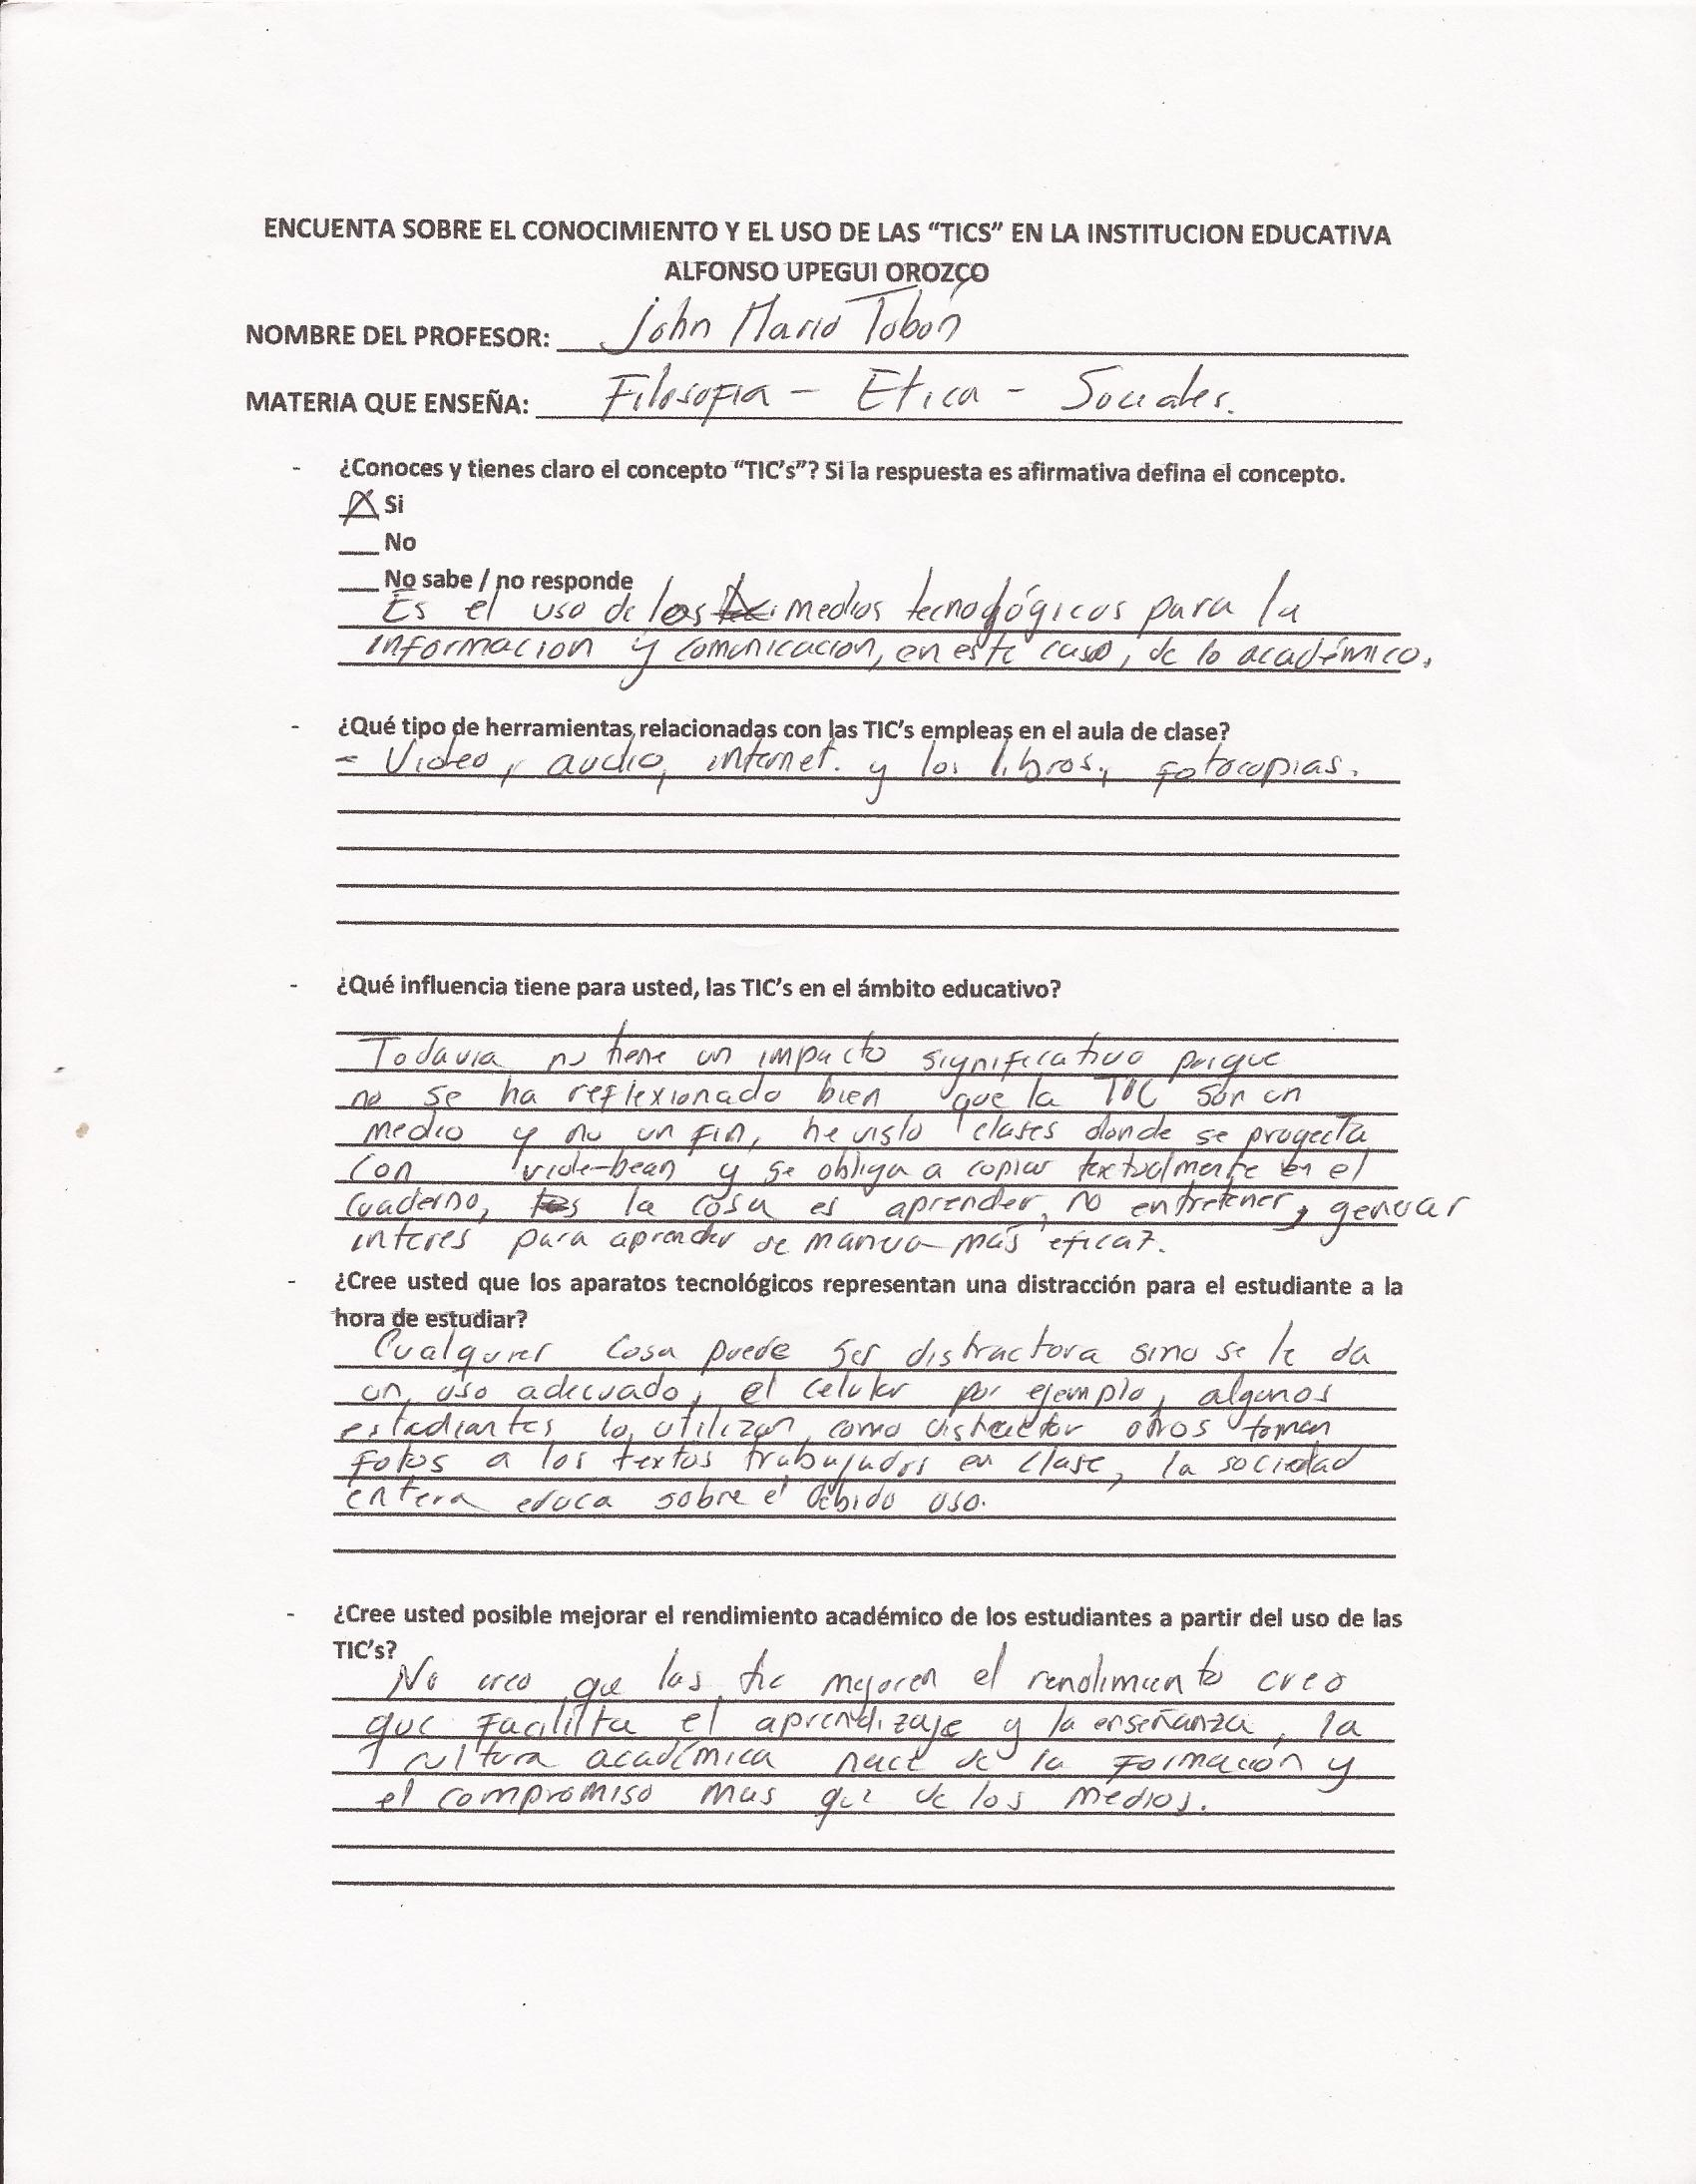 ENCUENTA SOBRE EL CONOCIMIENTO Y EL USO DE LAS “TICS” EN LA INSTITUCION EDUCATIVA
ALFONSO UPEGUI OROZCO
NOMBRE DEL PROFESOR: John Mario Tobón
MATERIA QUE ENSEÑA: Filosofia - Etica - Sociales.
- ¿Conoces y tienes claro el concepto “TIC’s”? Si la respuesta es afirmativa defina el concepto.
X Si
__ No
__ No sabe / no responde
Es el uso de los medios tecnológicos para la
informacion y comunicacion, en este caso, de lo académico.
- ¿Qué tipo de herramientas relacionadas con las TIC’s empleas en el aula de clase?
- Video, audio, internet. y los libros, fotocopias.
- ¿Qué influencia tiene para usted, las TIC’s en el ámbito educativo?
Todavia no tiene un impacto significativo porque
no se ha reflexionado bien que la TIC son un
medio y no un fin, he visto clases donde se proyecta
con vide-bean y se obliga a copiar textualmente en el
cuaderno, la cosa es aprender, no entretener, generar
interes para aprender de manera más eficaz.
- ¿Cree usted que los aparatos tecnológicos representan una distracción para el estudiante a la
hora de estudiar?
Cualquier cosa puede ser distractora sino se le da
un uso adecuado, el celular por ejemplo, algunos
estudiantes lo utilizan como distractor otros toman
fotos a los textos trabajados en clase, la sociedad
entera educa sobre el debido uso.
- ¿Cree usted posible mejorar el rendimiento académico de los estudiantes a partir del uso de las
TIC’s?
No creo que las tic mejoren el rendimiento creo
que facilita el aprendizaje y la enseñanza, la
cultura académica nace de la formación y
el compromiso mas que de los medios.